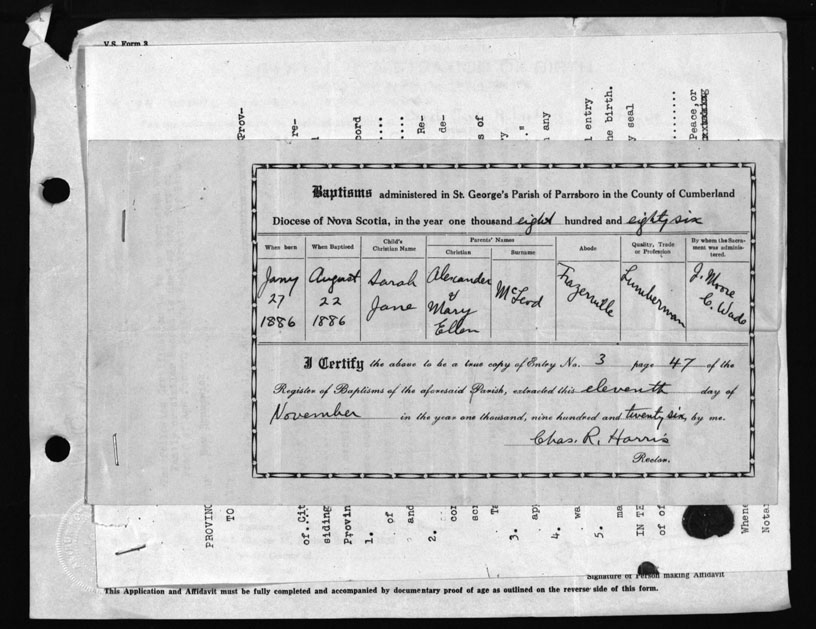 V.S. Form 3
Baptisms administered in St. George's Parish of Parrsboro in the County of Cumberland
Diocese of Nova Scotia, in the year one thousand eight hundred and eighty six
When born
When Baptised
Child's Christian Name
Parents' Names
Christian
Surname
Abode
Quality, Trade or Profession
By whom the Sacrament was administered.
Jany 27 1886
August 22 1886
Sarah Jane
Alexander & Mary Ellen
McLeod
Frazerville
Lumberman
J. Moore C. Wade
I Certify the above to be a true copy of Entry No. 3 page 47 of the
Register of Baptisms of the aforesaid Parish, extracted this eleventh day of
November in the year one thousand, nine hundred and twenty six, by me.
Chas. R. Harris
Rector.
Prov-
re-
cord
....
....
Re-
de-
s of
any
l entry
he birth.
y seal
..........
Peace, or
PROVINC
TO
of. Cit
siding
Provin
1. of
and
2. con
scr
Ta
3. ap
4. wa
5. ma
IN TE
of of
Whene
Notar
Signature of Person making Affidavit
This Application and Affidavit must be fully completed and accompanied by documentary proof of age as outlined on the reverse side of this form.